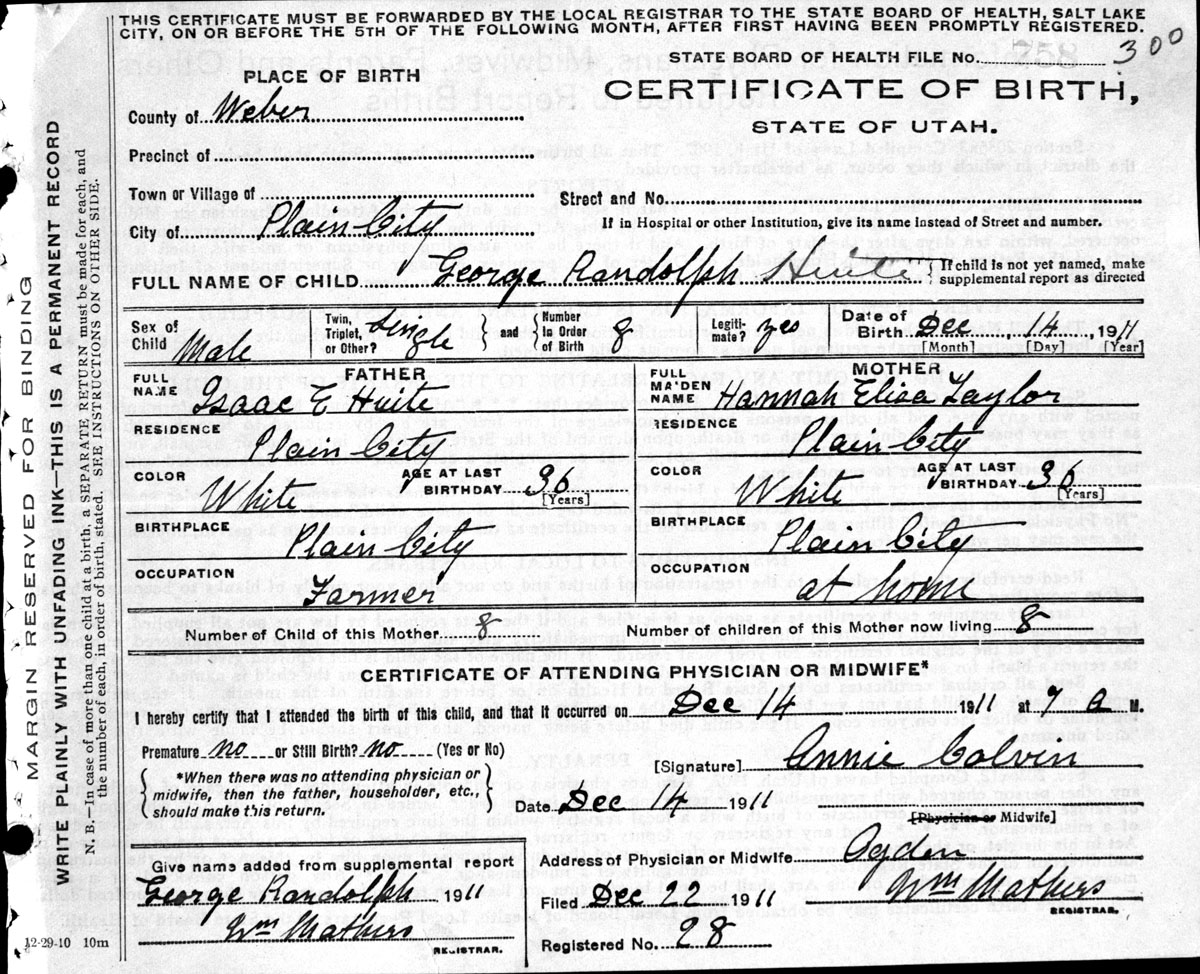 THIS CERTIFICATE MUST BE FORWARDED BY THE LOCAL REGISTRAR TO THE STATE BOARD OF HEALTH, SALT LAKE
CITY, ON OR BEFORE THE 5TH OF THE FOLLOWING MONTH, AFTER FIRST HAVING BEEN PROMPTLY REGISTERED.
STATE BOARD OF HEALTH FILE No. 300
PLACE OF BIRTH
CERTIFICATE OF BIRTH,
STATE OF UTAH.
County of Weber
Precinct of
Town or Village of
Street and No.
City of Plain City
If in Hospital or other Institution, give its name instead of Street and number.
FULL NAME OF CHILD George Randolph Huite { If child is not yet named, make
supplemental report as directed
Sex of Child Male
Twin, Triplet, or Other? Single
and Number in Order of Birth 8
Legitimate? yes
Date of Birth Dec 14 1911
[Month] [Day] [Year]
FATHER
FULL NAME Isaac E Huite
RESIDENCE Plain City
COLOR White AGE AT LAST BIRTHDAY 36 [Years]
BIRTHPLACE Plain City
OCCUPATION Farmer
MOTHER
FULL MAIDEN NAME Hannah Eliza Taylor
RESIDENCE Plain City
COLOR White AGE AT LAST BIRTHDAY 36 [Years]
BIRTHPLACE Plain City
OCCUPATION at home
Number of Child of this Mother 8
Number of children of this Mother now living 8
CERTIFICATE OF ATTENDING PHYSICIAN OR MIDWIFE*
I hereby certify that I attended the birth of this child, and that it occurred on Dec 14 1911 at 7 a M.
Premature no or Still Birth? no (Yes or No)
*When there was no attending physician or
midwife, then the father, householder, etc.,
should make this return.
[Signature] Annie Colvin
Date Dec 14 1911
[Physician or Midwife]
Given name added from supplemental report
George Randolph 1911
Wm Mathers
REGISTRAR.
Address of Physician or Midwife Ogden
Filed Dec 22 1911 Wm Mathers
REGISTRAR.
Registered No. 28
12-29-10 10m
MARGIN RESERVED FOR BINDING
WRITE PLAINLY WITH UNFADING INK—THIS IS A PERMANENT RECORD
N. B.—In case of more than one child at a birth, a SEPARATE RETURN must be made for each, and
the number of each, in order of birth, stated. SEE INSTRUCTIONS ON OTHER SIDE.